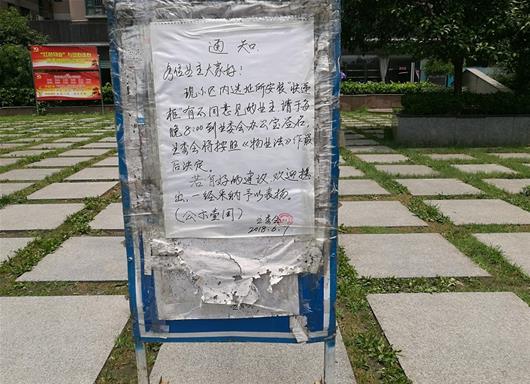 通知
各位业主大家好!
现小区内选址所安装快递
柜,有不同意见的业主请于每
晚8:00到业委会办公室签名,
业委会将按照《物业法》作最
后决定。
若有好的建议,欢迎提
出,一经采纳予以表扬。
(公示壹周)
业委会
2018.6.7